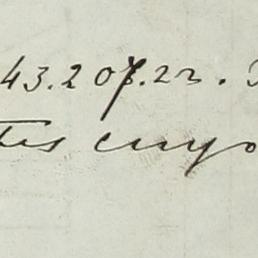 43.207.22.
tes cuyo